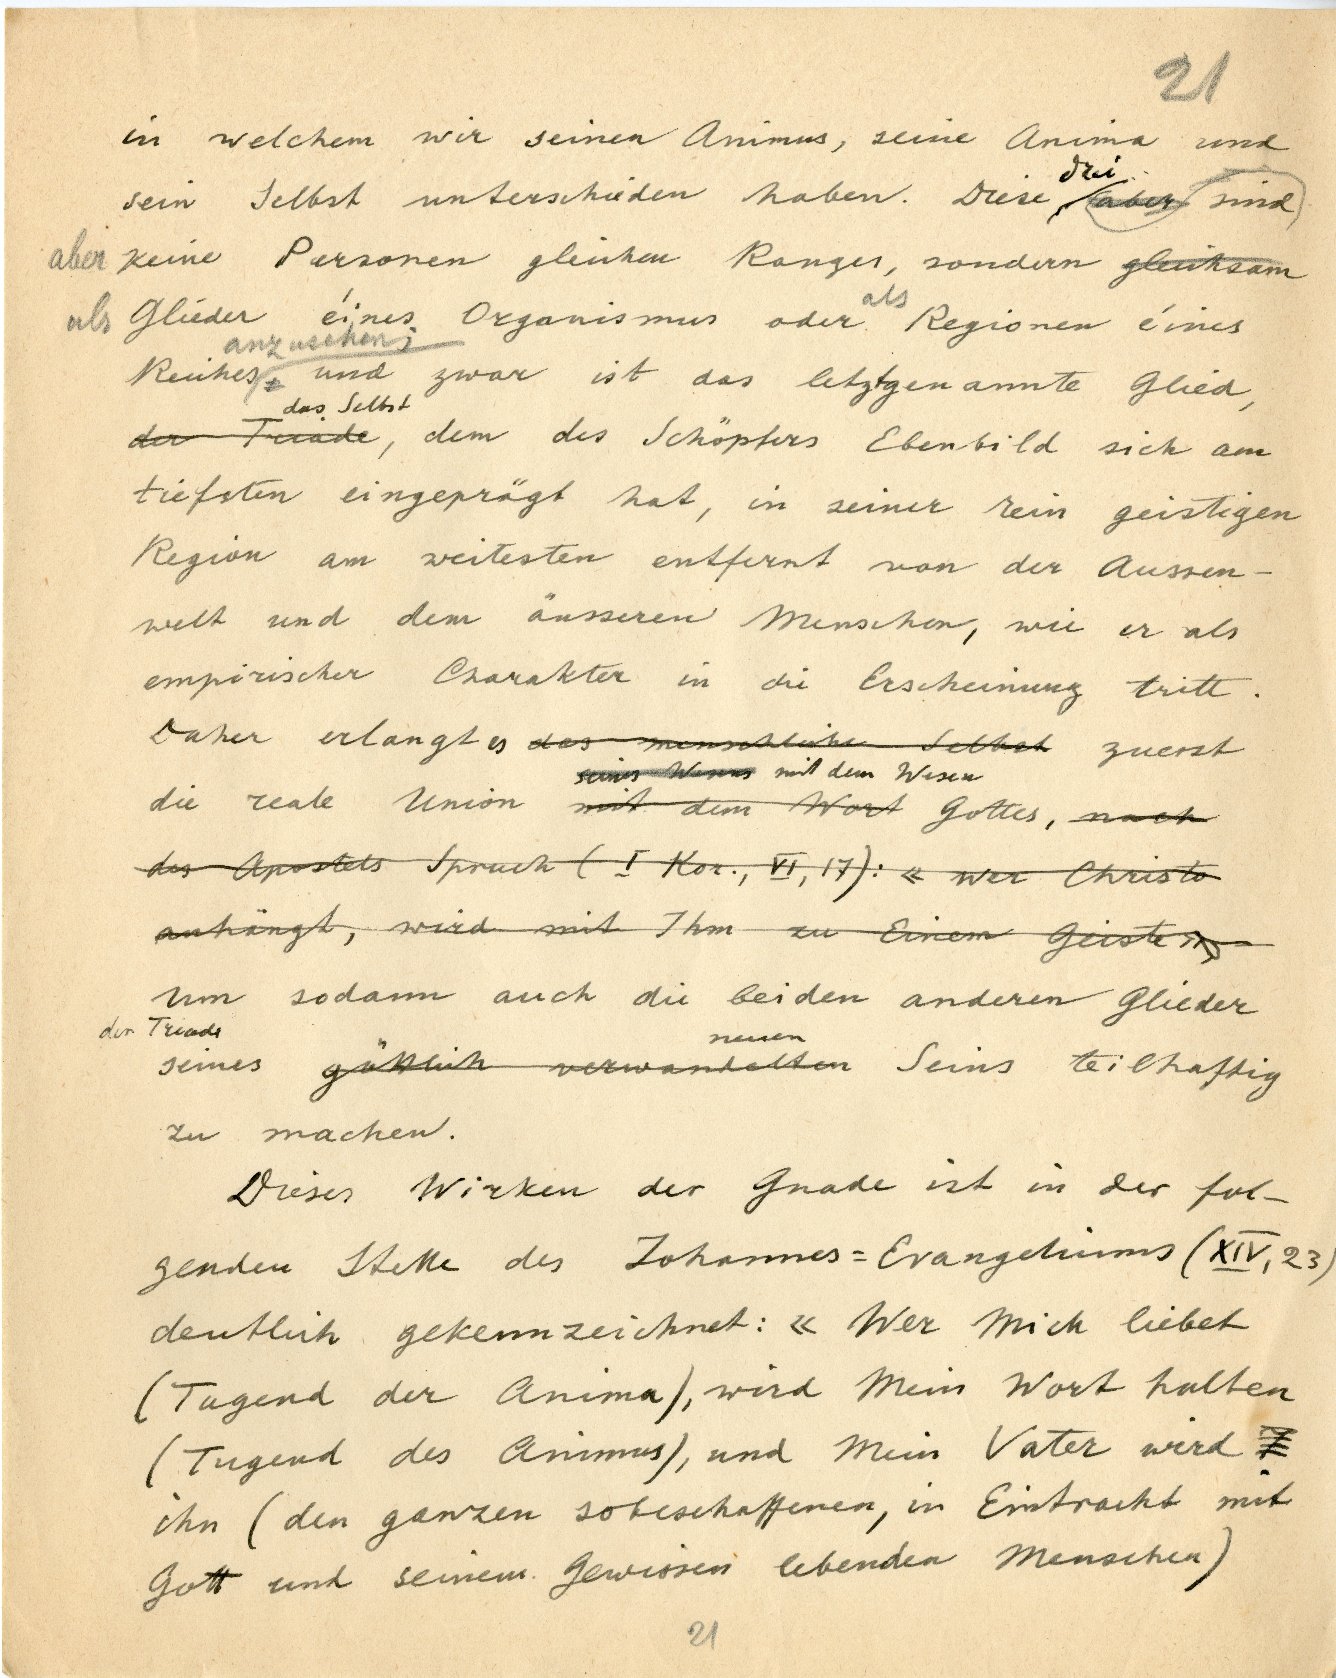 21
in welchem wir seinen Animus, seine Anima und
drei
sein Selbst unterschieden haben. Diese aber sind
aber keine Personen gleichen Ranges, sondern gleichsam
als Glieder éines Organismus oder als Regionen éines
anzusehen;
Reiches, und zwar ist das letztgenannte Glied,
das Selbst
der Triade, dem des Schöpfers Ebenbild sich am
tiefsten eingeprägt hat, in seiner rein geistigen
Region am weitesten entfernt von der Aussen-
welt und dem äusseren Menschen, wie er als
empirischer Charakter in die Erscheinung tritt.
Daher erlangt es das menschliche Selbst zuerst
seines Wesens mit dem Wesen
die reale Union mit dem Wort Gottes, nach
des Apostels Spruch (I Kor., VI, 17): « wer Christo
anhängt, wird mit Ihm zu Einem Geiste »,
um sodann auch die beiden anderen Glieder
der Triade neuen
seines göttlich verwandelten Seins teilhaftig
zu machen.
Dieses Wirken der Gnade ist in der fol-
genden Stelle des Johannes=Evangeliums (XIV, 23)
deutlich gekennzeichnet: « Wer Mich liebet
(Tugend der Anima), wird Mein Wort halten
(Tugend des Animus), und Mein Vater wird
ihn (den ganzen sobeschaffenen, in Eintracht mit
Gott und seinem Gewissen lebenden Menschen)
21